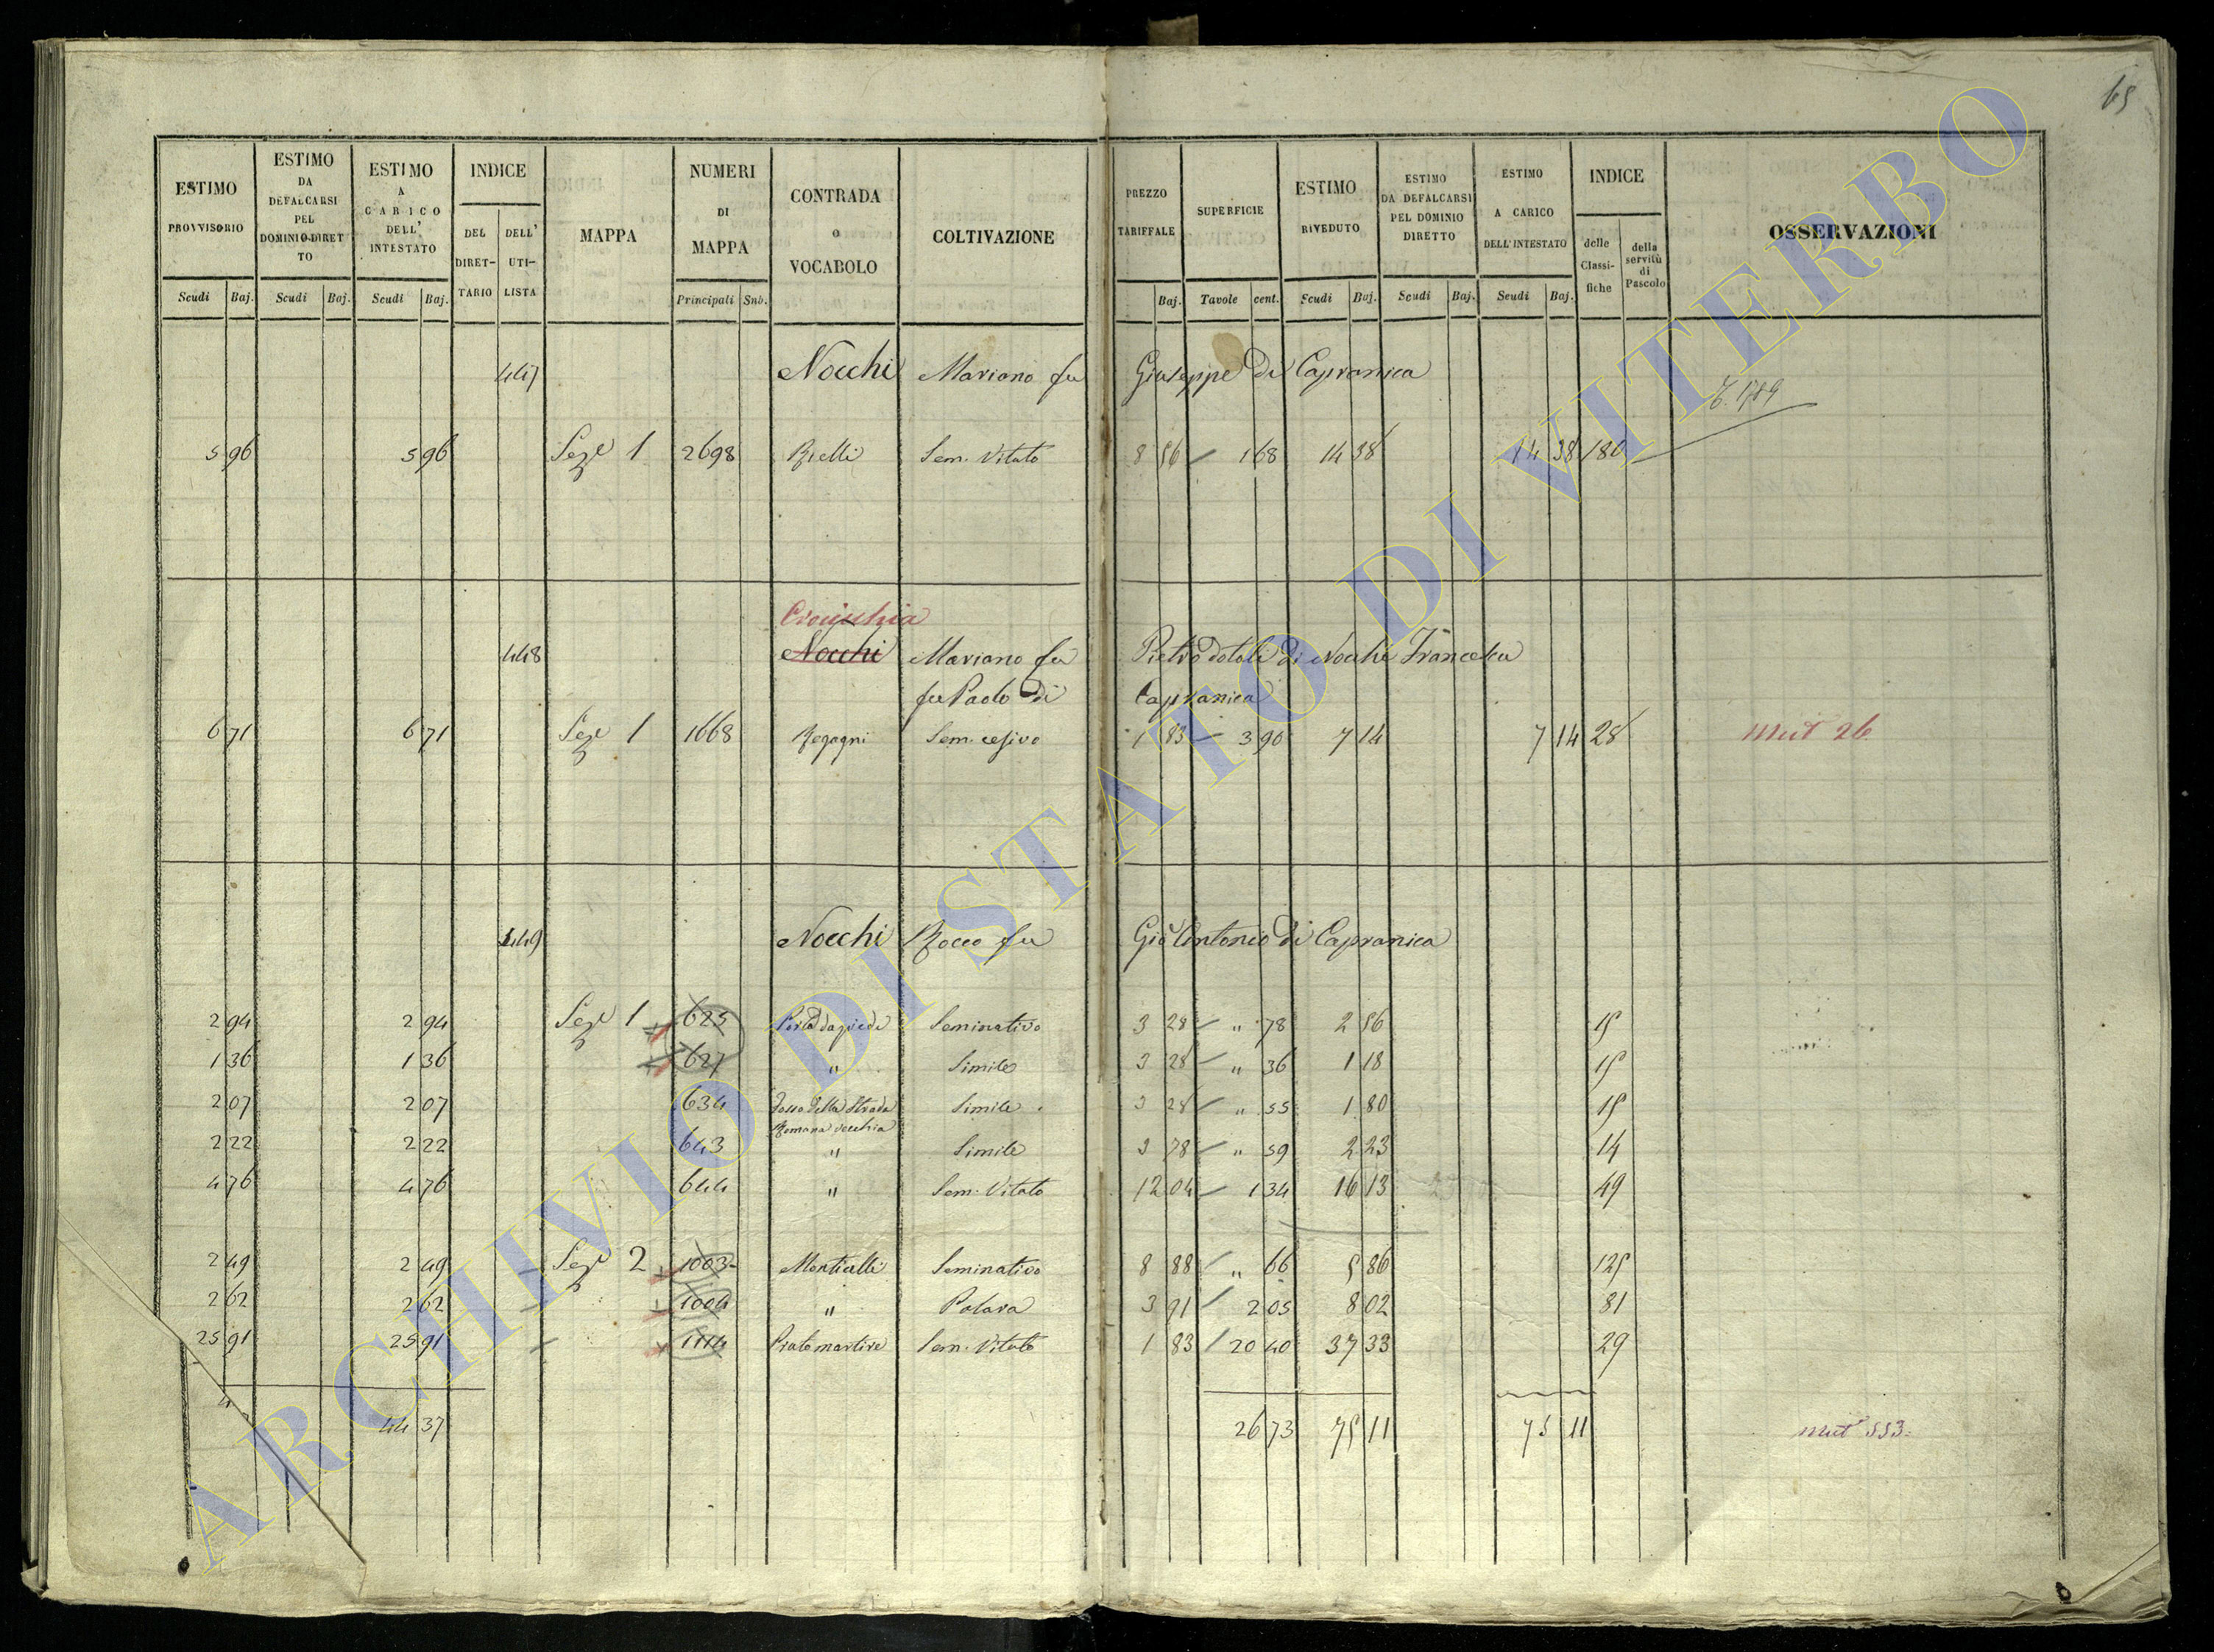 65
ESTIMO PROVVISORIO
ESTIMO DA DEFALCARSI PEL DOMINIO DIRETTO
ESTIMO A CARICO DELL' INTESTATO
INDICE
DEL DIRET-TARIO
DELL' UTI-LISTA
MAPPA
NUMERI DI MAPPA
CONTRADA o VOCABOLO
COLTIVAZIONE
PREZZO TARIFFALE
SUPERFICIE
ESTIMO RIVEDUTO
ESTIMO DA DEFALCARSI PEL DOMINIO DIRETTO
ESTIMO A CARICO DELL'INTESTATO
INDICE
delle Classi-fiche
della servitù di Pascolo
OSSERVAZIONI
Scudi Baj. Scudi Baj. Scudi Baj. Principali Sub. Baj. Tavole cent. Scudi Baj. Scudi Baj. Scudi Baj.
447 Nocchi Mariano fu Giuseppe di Capranica
5 96 5 96 Sez.e 1 2698 Sem. Vitato 8 56 1 68 14 38 14 38 180
Crocicchia
448 Nocchi Mariano fu Pietro dotali di Nocchi Francesca
fu Paolo di Capranica
6 71 6 71 Sez.e 1 1668 Sem. cesivo 1 83 3 90 7 14 7 14 28 Mut 26
449 Nocchi Rocco fu Gio Antonio di Capranica
2 94 2 94 Sez.e 1 625 Seminativo 3 28 " 78 2 56 15
1 36 1 36 627 " Simile 3 28 " 36 1 18 15
2 07 2 07 634 Fosso della Strada Simile 3 28 " 55 1 80 15
Romana vecchia
2 22 2 22 643 " Simile 3 78 " 59 2 23 14
4 76 4 76 644 " Sem. Vitato 12 04 1 34 16 13 49
2 49 2 49 Sez.e 2 1003 Monticelli Seminativo 8 88 " 66 5 86 125
2 62 2 62 1004 " 3 91 2 05 8 02 81
25 91 25 91 1114 Prato martire Sem. Vitato 1 83 20 40 37 33 29
44 37 26 73 75 11 75 11 Mut 553.
ARCHIVIO DI STATO DI VITERBO